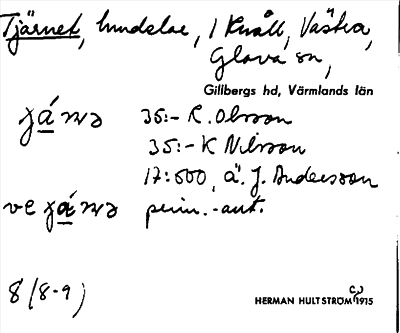 Tjärnet, hundelse, i Knöll, Västra,
Glava sn,
Gillbergs hd, Värmlands län
já̱nə 35:- R. Olsson
35:- K Nilsson
17:500, ä. J. Andersson
ve já̱nə perm.-ant.
8 (8-9)
HERMAN HULTSTRÖM 1915